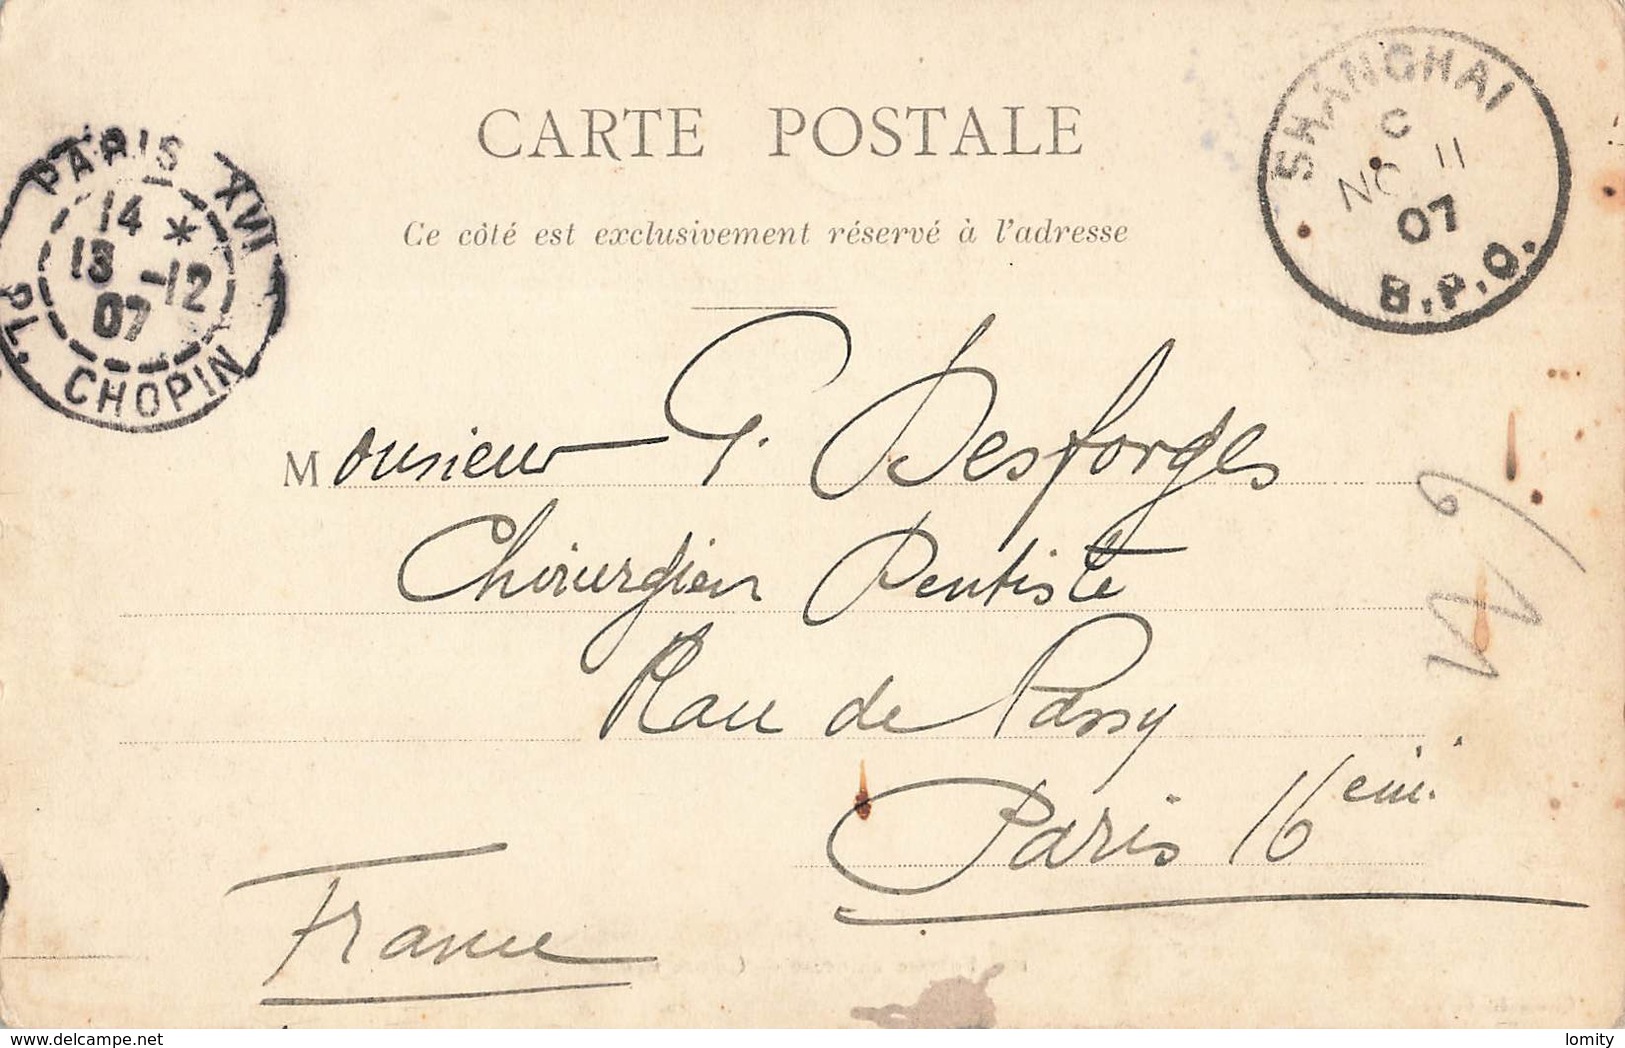 CARTE POSTALE
Ce côté est exclusivement réservé à l'adresse
SHANGHAI
C
NO 11
07
B.P.O.
PARIS XVI
14 *
13 -12
07
PL. CHOPIN
Monsieur G. Desforges
Chirurgien Dentiste
de Passy
Paris 16
France
delcampe.net
lomity